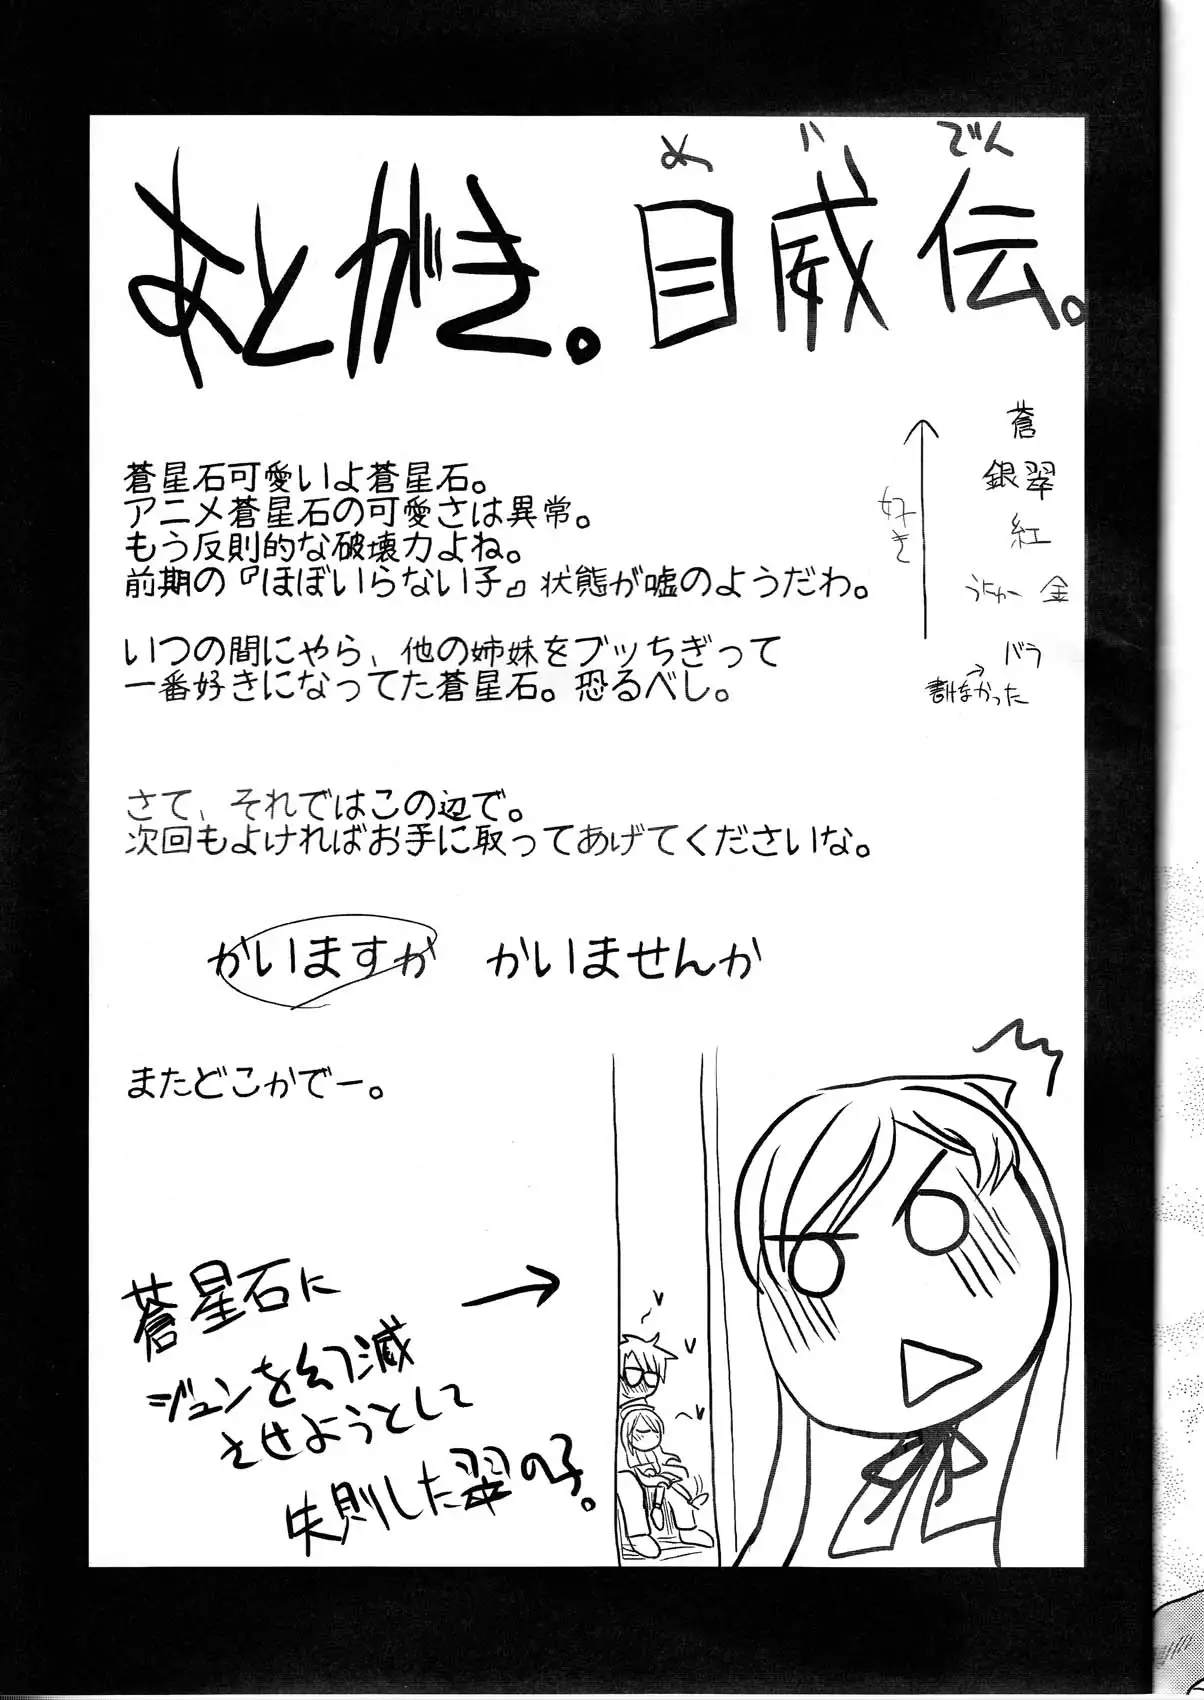 あとがき。目威伝。
めいでん
蒼星石可愛いよ蒼星石。
アニメ蒼星石の可愛さは異常。
もう反則的な破壊力よね。
前期の『ほぼいらない子』状態が嘘のようだわ。
いつの間にやら、他の姉妹をブッちぎって
一番好きになってた蒼星石。恐るべし。
好き
蒼
銀翠
紅
金
バラ
さて、それではこの辺で。
次回もよければお手に取ってあげてくださいな。
かいますか かいませんか
またどこかでー。
蒼星石に
ジュンを幻滅
させようとして
失則した翠の子。